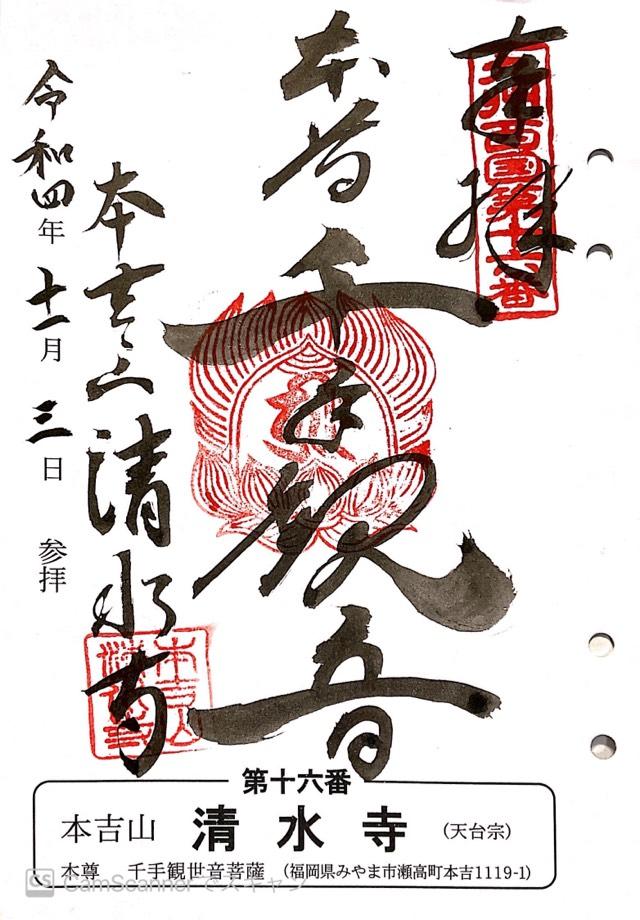 奉拝
九州西国第十六番
本尊
千手観音
本吉山
清水寺
令和四年 十一月 三日 参拝
第十六番
本吉山 清水寺 (天台宗)
本尊 千手観世音菩薩 (福岡県みやま市瀬高町本吉1119-1)
CS CamScannerでスキャン